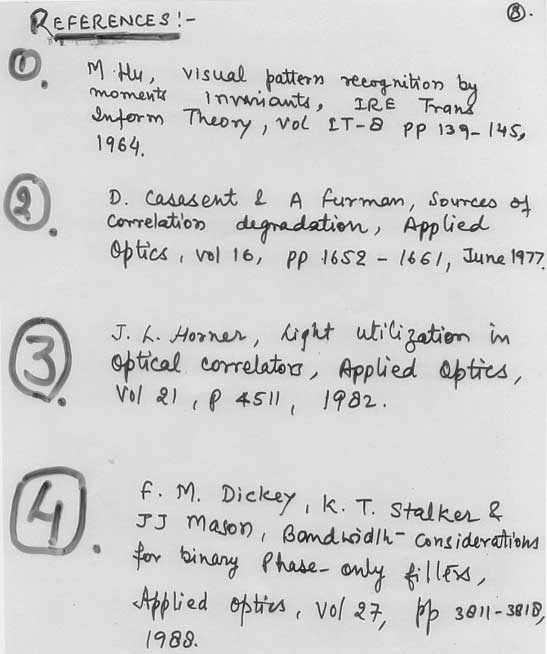 REFERENCES:-
8.
1. M. Hu, visual pattern recognition by
moments invariants, IRE Trans
Inform Theory, Vol IT-8 pp 139-145,
1964.
2. D. Casasent & A Furman, Sources of
correlation degradation, Applied
Optics, vol 16, pp 1652 - 1661, June 1977.
3. J. L. Horner, Light utilization in
optical correlators, Applied Optics,
Vol 21, p 4511, 1982.
4. F. M. Dickey, K. T. Stalker &
JJ Mason, Bandwidth-considerations
for binary Phase-only filters,
Applied Optics, Vol 27, pp 3811-3818,
1988.